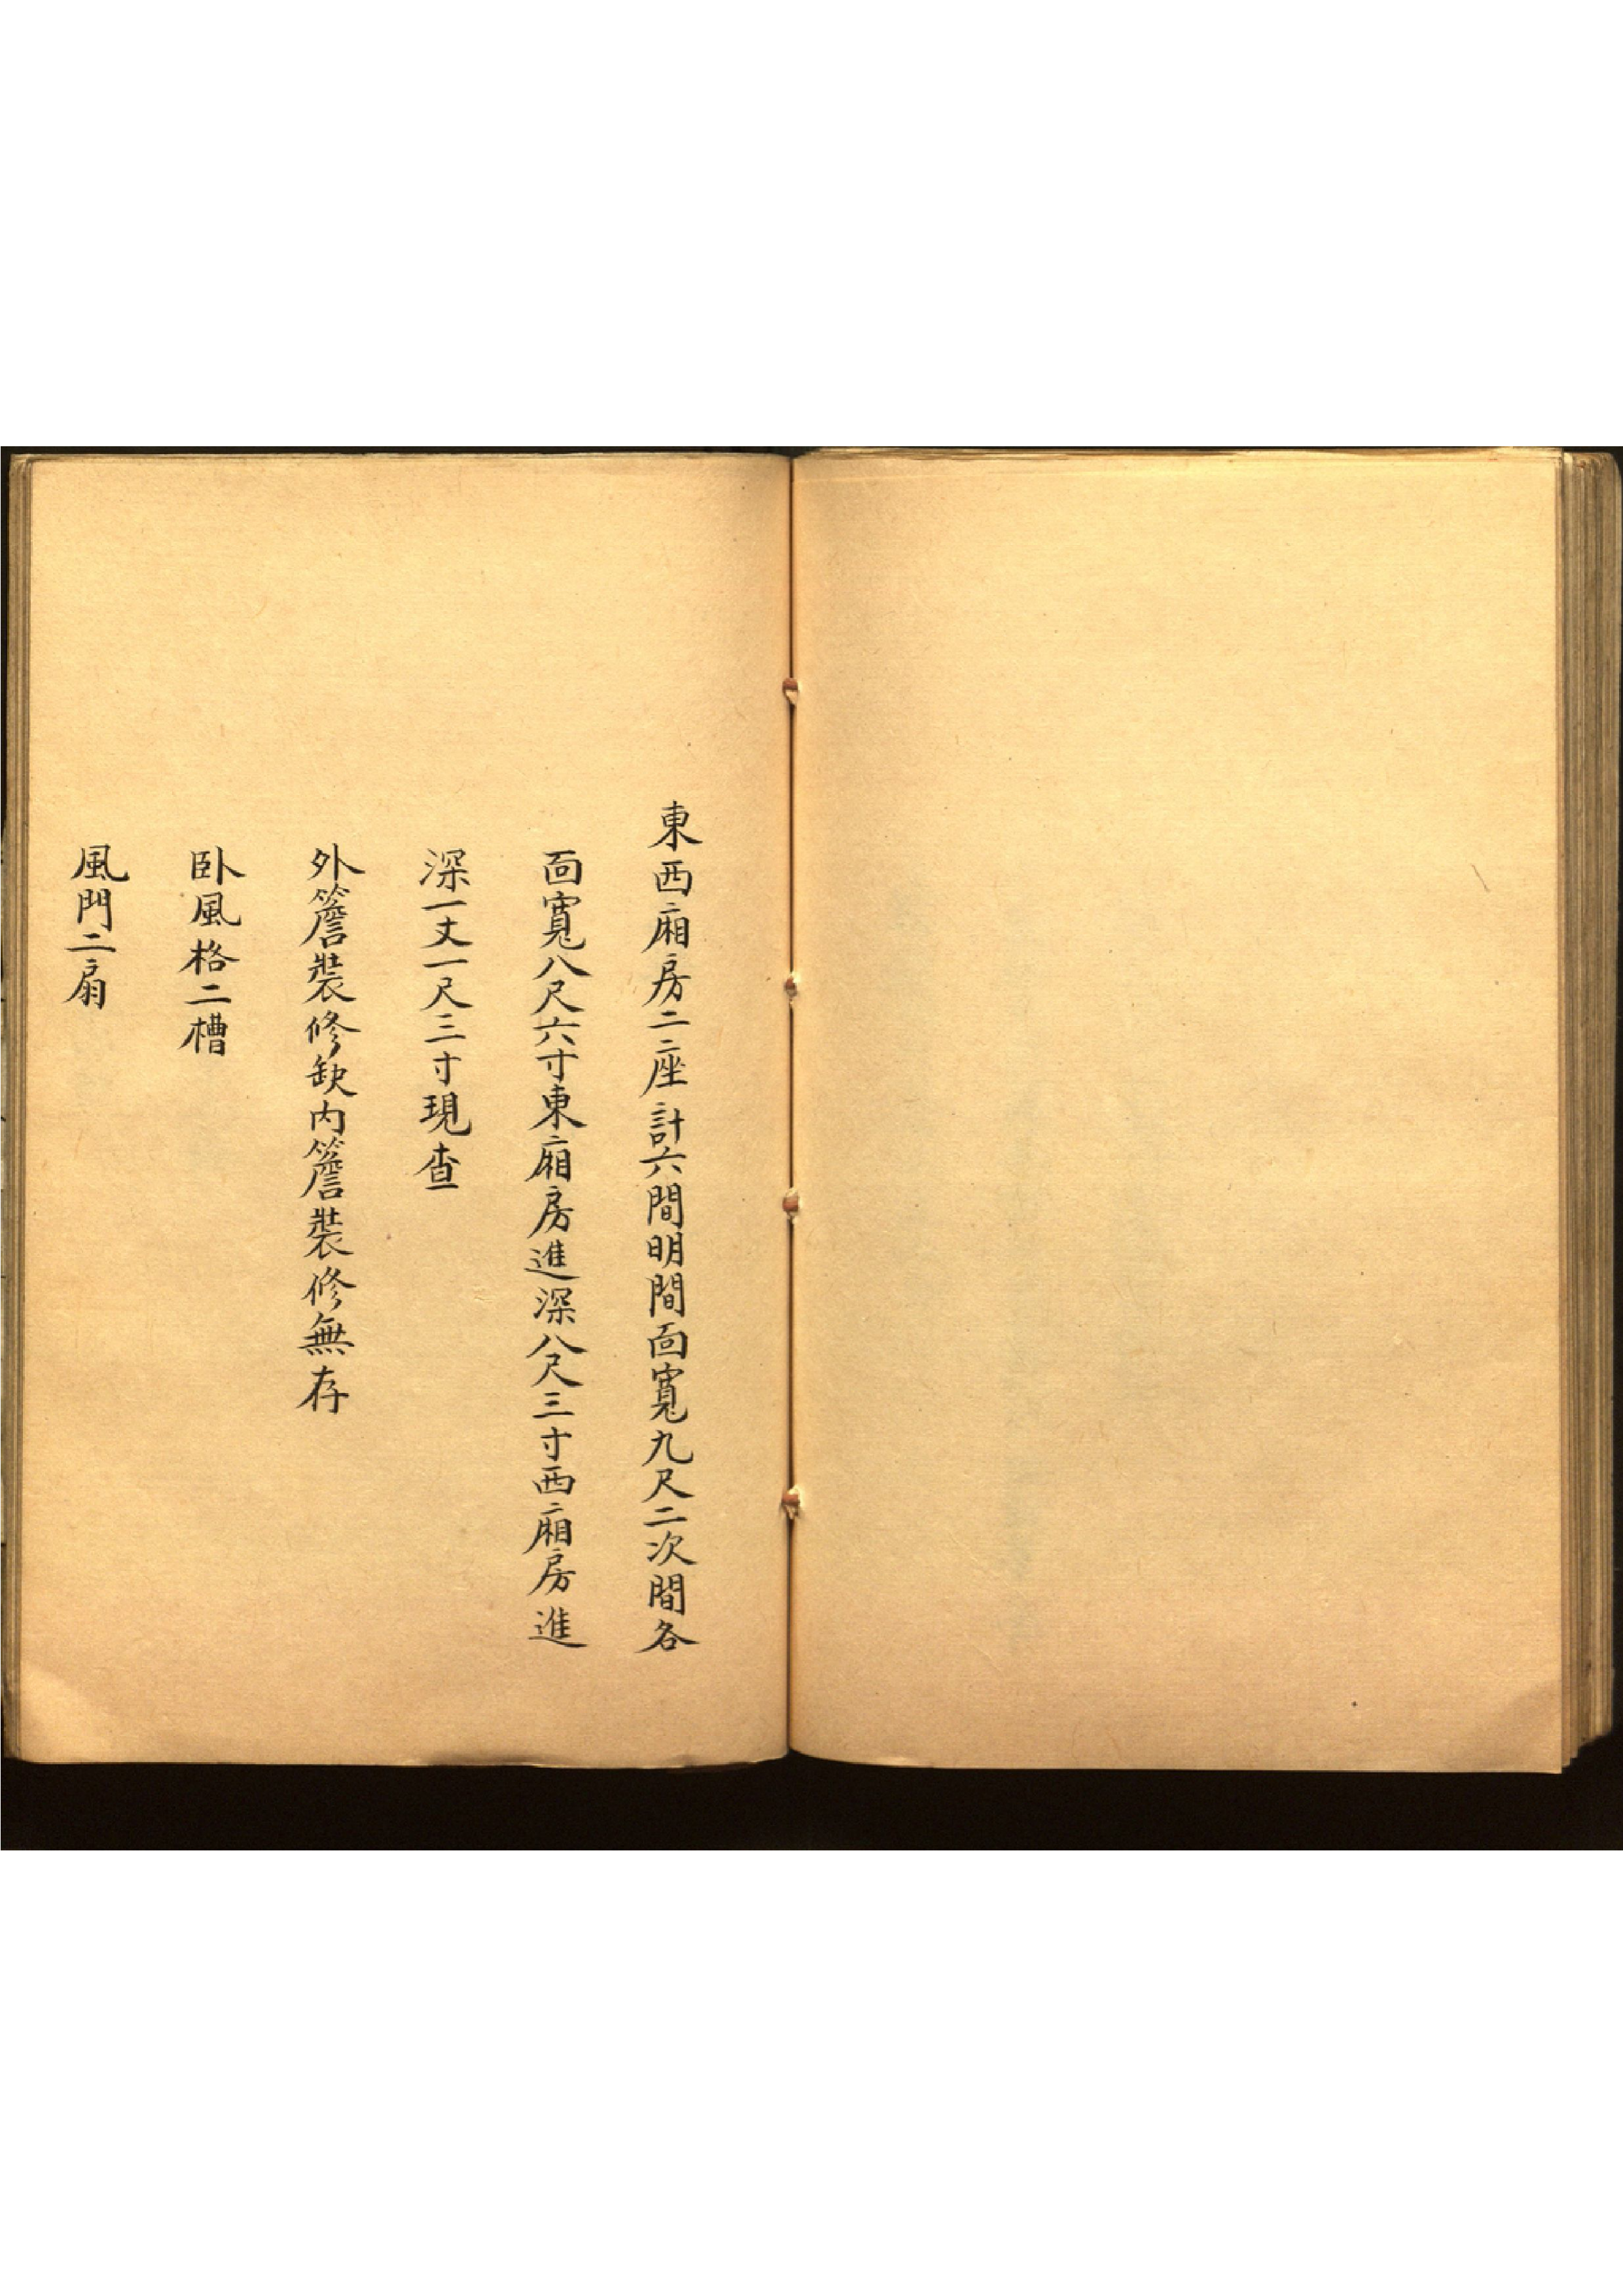 東西廂房二座計六間明間面寬九尺二次間各
面寬八尺六寸東廂房進深八尺三寸西廂房進
深一丈一尺三寸現查
外簷裝修缺内簷裝修無存
卧風格二槽
風門二扇